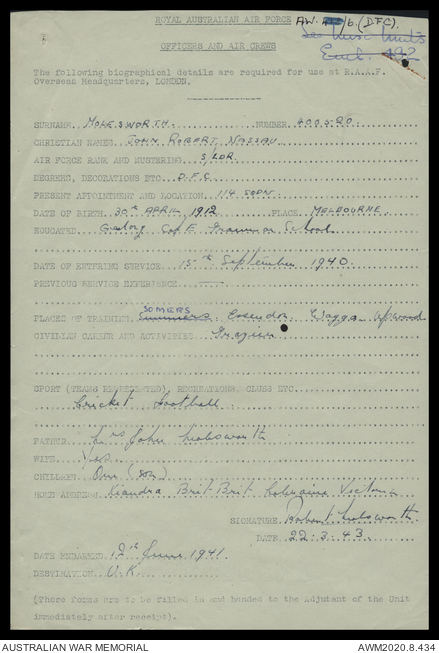 ROYAL AUSTRALIAN AIR FORCE AW. /6.(DFC).
OFFICERS AND AIR CREWS
The following biographical details are required for use at R.A.A.F.
Overseas Headquarters, LONDON.
SURNAME MOLESWORTH NUMBER 400520
CHRISTIAN NAMES JOHN ROBERT NASSAU
AIR FORCE RANK AND MUSTERING S/LDR
DEGREES, DECORATIONS ETC D.F.C
PRESENT APPOINTMENT AND LOCATION 114 SQDN
DATE OF BIRTH 30th APRIL 1912 PLACE MELBOURNE
EDUCATED C of E Grammar School
DATE OF ENTERING SERVICE 15th September 1940.
PREVIOUS SERVICE EXPERIENCE
SOMERS
PLACES OF TRAINING Essendon Wagga Upwood
CIVILIAN CAREER AND ACTIVITIES Grazier
SPORT (TEAMS REPRESENTED), RECREATIONS, CLUBS ETC
Cricket Football
FATHER John Molesworth
WIFE Yes
CHILDREN One (son)
HOME ADDRESS Kiandra Brit Brit Coleraine Victoria
SIGNATURE Robert Molesworth
DATE 22.3.43
DATE EMBARKED 12th June 1941.
DESTINATION U.K.
(These forms are to be filled in and handed to the Adjutant of the Unit
immediately after receipt).
AUSTRALIAN WAR MEMORIAL AWM2020.8.434